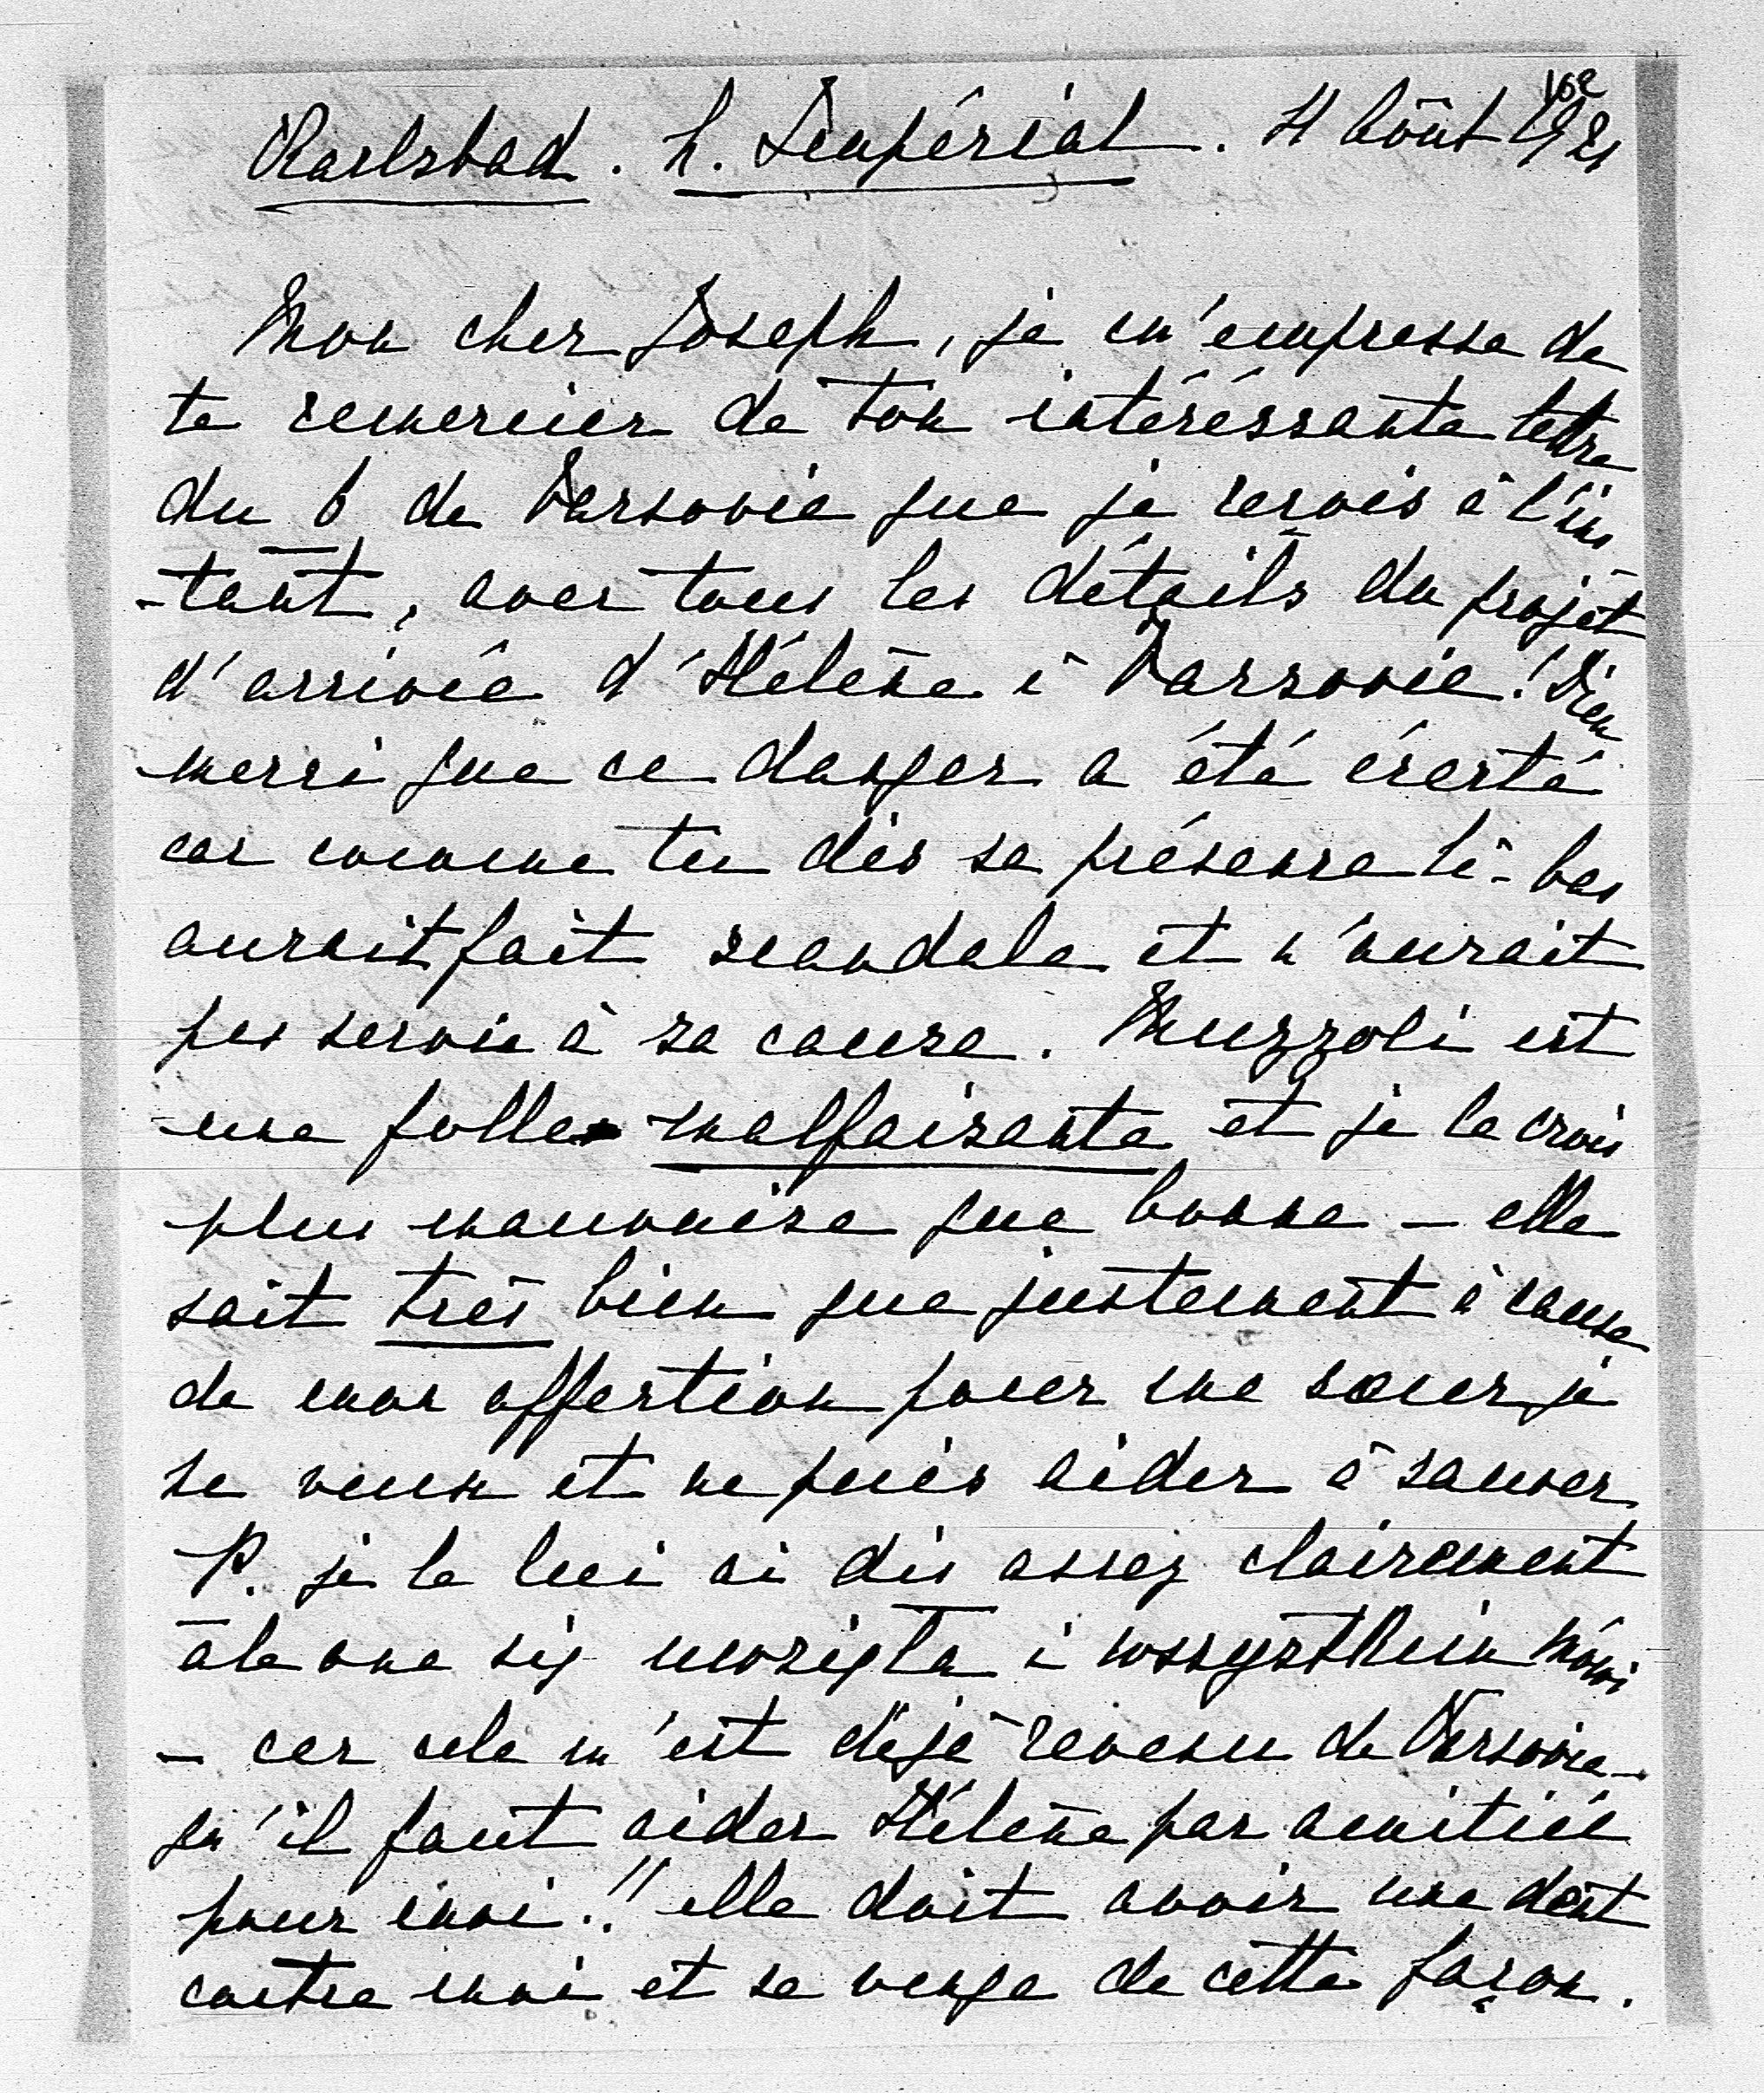 162
Karlsbad. h. Impérial. 11 Août 1921
Mon cher Joseph, je m'empresse de
te remercier de ton intéréssante lettre
du 6 de Varsovie que je reçois à l'ins
-tant, avec tous les détails du projet
d'arrivée d'Hélène à Varsovie! Dieu
merci que ce danger a été écarté
car comme tu dis sa présence là-bas
aurait fait scandale et n'aurait
pas servie à sa cause. Muzzoli est
une folle malfaisante et je la crois
plus mauvaise que bonne – elle
sait très bien que justement à cause
de mon affection pour ma sœur je
ne veux et ne puis aider à sauver
P. je le lui ai dis assez clairement
ale ona się i wszystkim mówi
– car cela m'est déjà revenu de Varsovie –
qu'il faut aider Hélène par amitiée
pour moi!! elle doit avoir une dent
contre moi et se venge de cette façon.